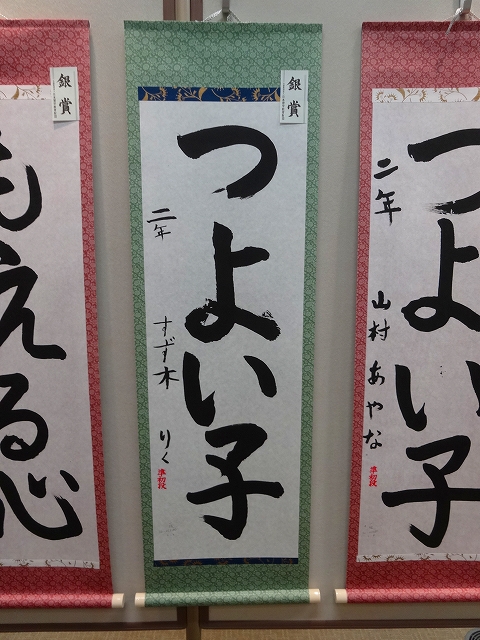 銀賞
もえる心
銀賞
つよい子
二年
すず木 りく
準初段
つよい子
二年
山村 あやな
準初段